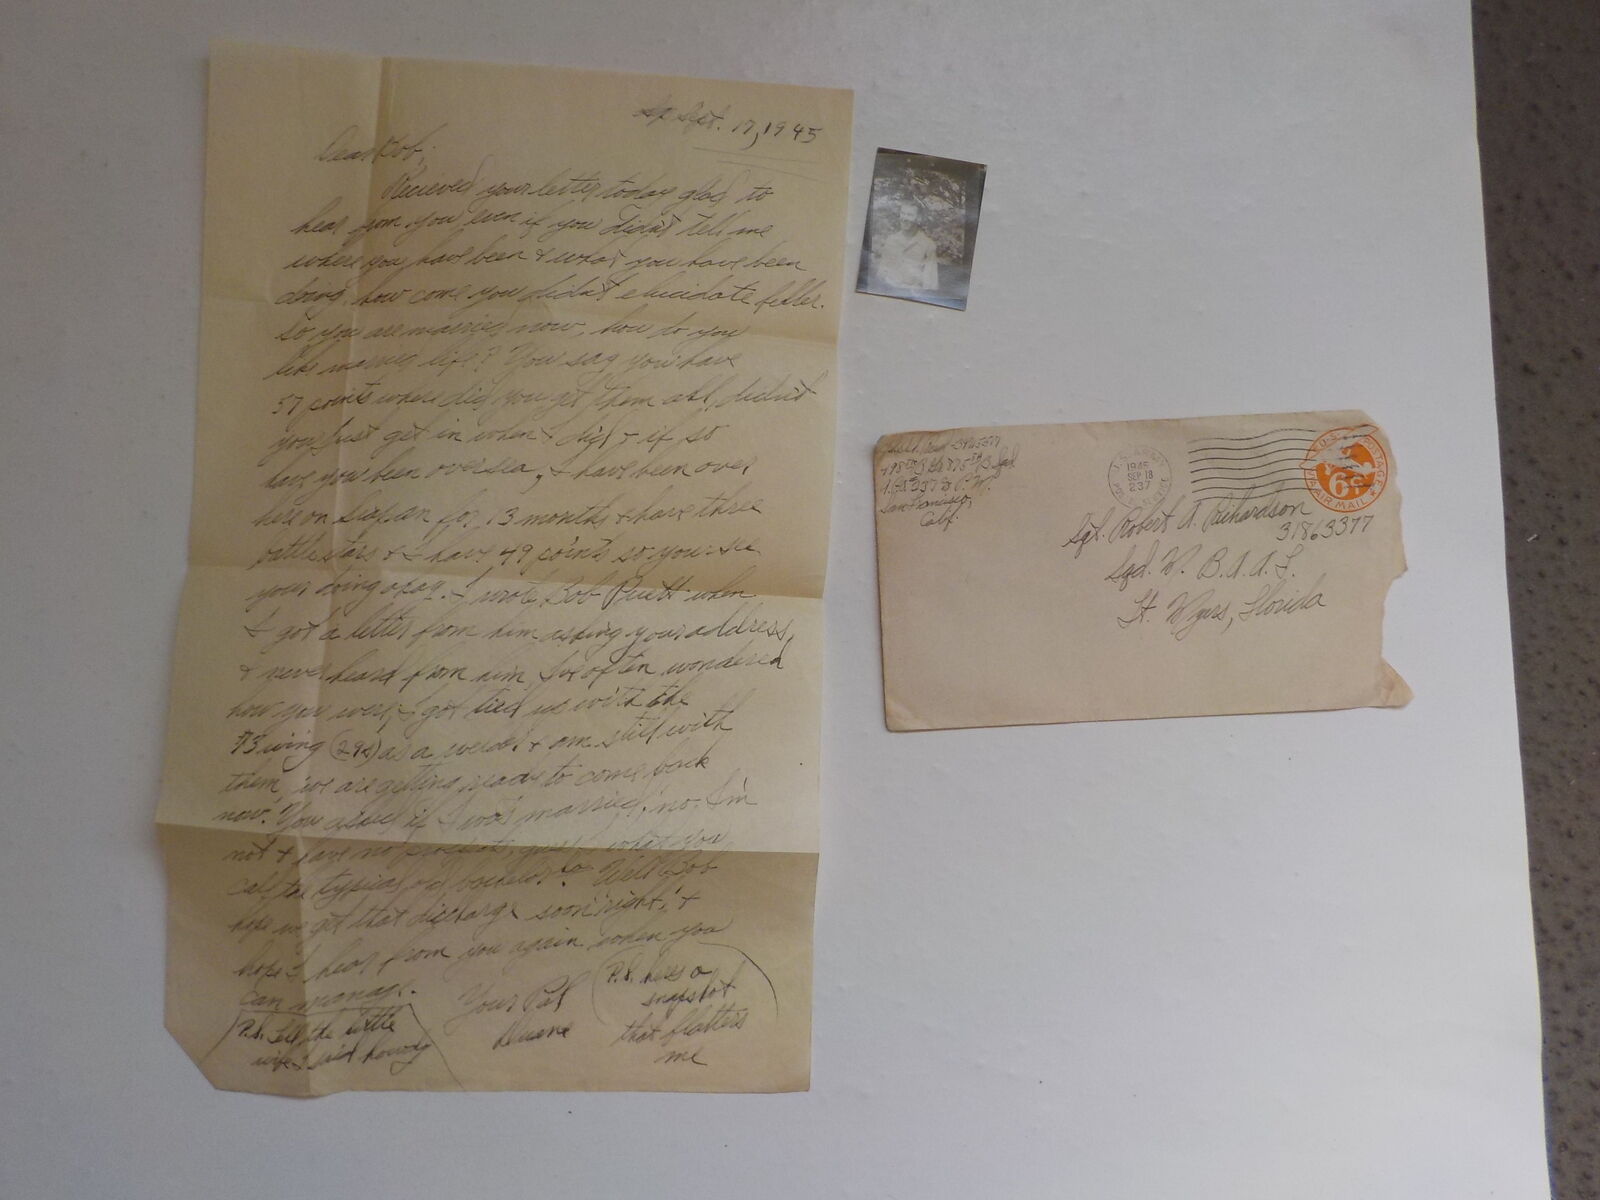 Sept. 17, 1945
Dear Bob,
Recieved your letter today glad to
hear from you even if you didn't tell me
where you have been & what you have been
doing, how come you didn't elucidate feller.
So you are married now, how do you
like married life? You say you have
57 points where did you get them all, didn't
you just get in when I did & if so
have you been over sea, I have been over
here on Siapan for 13 months & have three
battle stars & I have 49 points so you see
your doing okay. I wrote Bob Puett when
I got a letter from him asking your address,
& never heard from him, I've often wondered
how you were, I got tied up with the
73 wing (29s) as a & am still with
them, we are getting ready to come back
now. You asked if I was married, no, I'm
not & have no prospects, guess what you
call the typical old bachelor. Well Bob
hope we get that discharge soon 'right', &
hope I hear from you again when you
can manage.
Your Pal
Duane
P.S. here's a
snapshot
that flatters
me
P.S. tell the little
wife I said howdy
San Francisco,
Calif.
U.S. ARMY
1945
SEP 18
237
U.S. POSTAGE
6¢
VIA AIR MAIL
Sgt. Robert A. Richardson
31863377
Sqd. W. B.A.A.F.
Ft. Myers, Florida